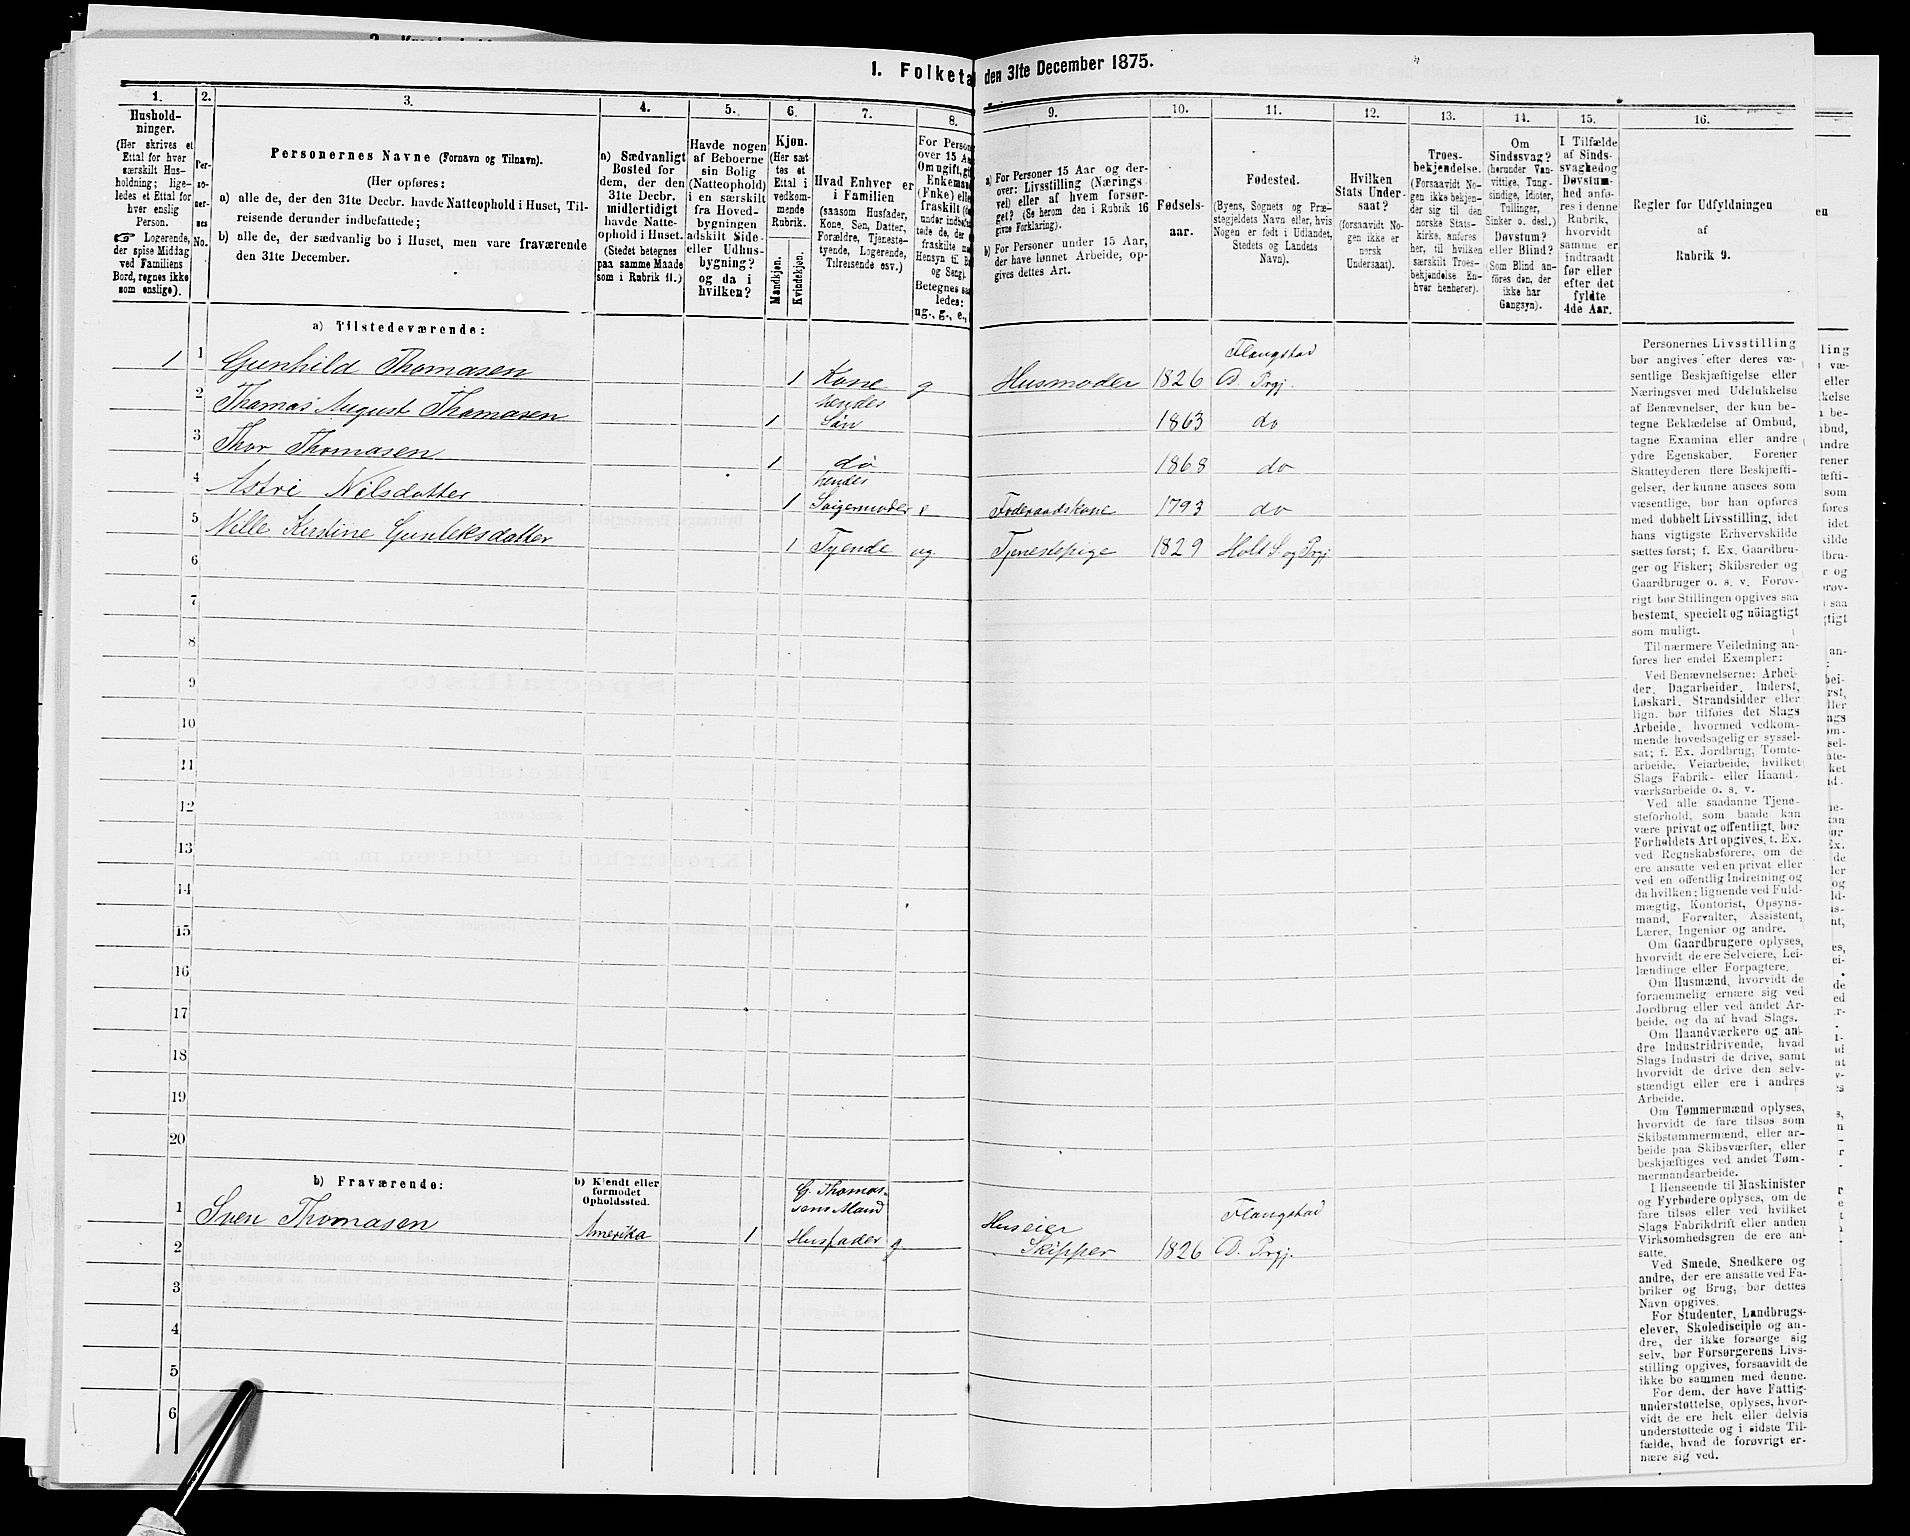 1. Folketal den 31te December 1875.
1.
Hushold-
ninger.
(Her skrives et
Ettal for hver
særskilt Hus-
holdning; lige-
ledes et Ettal for
hver enslig
Person.
☞ Logerende,
der spise Middag
ved Familiens
Bord, regnes ikke
som enslige).
2.
Per-
so-
ner-
nes
No.
3.
Personernes Navne (Fornavn og Tilnavn).
(Her opføres:
a) alle de, der den 31te Decbr. havde Natteophold i Huset, Til-
reisende derunder indbefattede;
b) alle de, der sædvanlig bo i Huset, men vare fraværende
den 31te December.
4.
a) Sædvanligt
Bosted for
dem, der den
31te Decbr.
midlertidigt
havde Natte-
ophold i Huset.
(Stedet betegnes
paa samme Maade
som i Rubrik 11.)
5.
Havde nogen
af Beboerne
sin Bolig
(Natteophold)
i en særskilt
fra Hoved-
bygningen
adskilt Side-
eller Udhus-
bygning?
og da i
hvilken?
6.
Kjøn.
(Her sæt-
tes et
Ettal i
vedkom-
mende
Rubrik.
Mandkjøn.
Kvindekjøn.
7.
Hvad Enhver er
i Familien
(saasom Husfader,
Kone, Søn, Datter,
Forældre, Tjeneste-
tyende, Logerende,
Tilreisende osv.)
8.
For Person
over 15 Aa
Om ugift, gi
Enkema
(Enke) elle
fraskilt
Betegnes saa
ledes:
ug., g., e.,
9.
a) For Personer 15 Aar og der-
over: Livsstilling (Nærings-
vei) eller af hvem forsør-
get? (Se herom den i Rubrik 16
givne Forklaring).
b) For Personer under 15 Aar,
der have lønnet Arbeide, op-
gives dettes Art.
10.
Fødsels-
aar.
11.
Fødested.
(Byens, Sognets og Præ-
stegjeldets Navn eller, hvis
Nogen er født i Udlandet,
Stedets og Landets
Navn).
12.
Hvilken
Stats Under-
saat?
(forsaavidt No-
gen ikke er
norsk
Undersaat).
13.
Troes-
bekjendelse.
(Forsaavidt No-
gen ikke bekjen-
der sig til den
norske Stats-
kirke, anføres
her, til hvilken
særskilt Troes-
bekjendelse En-
hver henhører).
14.
Om
Sindssvag?
(herunder Van-
vittige, Tung-
sindige, Idioter,
Tullinger,
Sinker o. desl.)
Døvstum?
eller Blind?
(Som Blind an-
føres den, der
ikke har
Gangsyn).
15.
I Tilfælde
af Sinds-
svaghed og
Døvstum-
hed anfø-
res i denne
Rubrik,
hvorvidt
samme er
indtraadt
før eller
efter det
fyldte
4de Aar.
16.
Regler for Udfyldningen
af
Rubrik 9.
a) Tilstedeværende:
1 1 Gunhild Thomasen 1 Kone g Husmoder 1826 Flangstad D. Prgj.
2 Thomas August Thomasen 1 hendes Søn 1863 do
3 Thor Thomasen 1 do 1868 do
4 Astri Nilsdatter 1 hendes Svigermoder e Føderaadskone 1793 do
5 Nille Kirstine Gunleksdatter 1 Tyende ug Tjenestepige 1829 Holt S og Prgj
6
7
8
9
10
11
12
13
14
15
16
17
18
19
20
b) Fraværende:
b) Kjendt eller
formodet
Opholdssted.
1 Sven Thomasen Amerika 1 G. Thomas-
sens Mand
Husfader g Huseier
Skipper 1826 Flangstad
D. Prgj.
2
3
4
5
6
Personernes Livsstilling
bør angives efter deres væ-
sentlige Beskjæftigelse eller
Næringsvei med Udelukkelse
af Benævnelser, der kun be-
tegne Beklædelse af Ombud,
tagne Examina eller andre
ydre Egenskaber. Forener
Skatteyderen flere Beskjæfti-
gelser, der kunne ansees som
væsentlige, bør han opføres
med dobbelt Livsstilling, idet
hans vigtigste Erhvervskilde
sættes først; f. Ex. Gaardbru-
ger og Fisker; Skibsreder og
Gaardbruger o. s. v. Forøv-
rigt bør Stillingen opgives saa
bestemt, specielt og nöiagtigt
som muligt.
Til nærmere Veiledning an-
føres her endel Exempler:
Ved Benævnelserne: Arbei-
der, Dagarbeider, Inderst,
Løskarl, Strandsidder eller
lign. bør tilføies det Slags
Arbeide, hvormed vedkom-
mende hovedsagelig er syssel-
sat; f. Ex. Jordbrug, Tomte-
arbeide, Veiarbeide, hvilket
Slags Fabrik- eller Haand-
værksarbeide o. s. v.
Ved alle saadanne Tjene-
steforhold, som baade kan
være privat og offentligt, bør
Forholdets Art opgives, t. Ex.
ved Regnskabsførere, om de
ere ansatte ved en privat eller
ved en offentlig Indretning og
da hvilken; lignende ved Fuld-
mægtig, Kontorist, Opsyns-
mand, Forvalter, Assistent,
Lærer, Ingeniør og andre.
Om Gaardbrugere oplyses,
hvorvidt de ere Selveiere, Lei-
lændinge eller Forpagtere.
Om Husmænd, hvorvidt de
fornemmelig ernære sig ved
Jordbrug eller ved andet Ar-
beide, og da af hvad Slags.
Om Haandværkere og an-
dre Industridrivende, hvad
Slags Industri de drive, samt
hvorvidt de drive den selv-
stændigt eller ere i andres
Arbeide.
Om Tømmermænd oplyses,
hvorvidt de fare tilsøs som
Skibstømmermænd, eller ar-
beide paa Skibsværfter, eller
beskjæftiges ved andet Tøm-
mermandsarbeide.
I Henseende til Maskinister
og Fyrbødere oplyses, om de
fare tilsøs eller ved hvilket
Slags Fabrikdrift eller anden
Virksomhedsgren de ere an-
satte.
Ved Smede, Snedkere og
andre, der ere ansatte ved Fa-
briker og Brug, bør dettes
Navn opgives.
For Studenter, Landbrugs-
elever, Skoledisciple og an-
dre, der ikke forsørge sig
selv, bør Forsørgerens Livs-
stilling opgives, forsaavidt de
ikke bo sammen med denne.
For dem, der have Fattig-
understøttelse, oplyses, hvor-
vidt de ere helt eller delvis
understøttede og i sidste Til-
fælde, hvad de forøvrigt er-
nære sig ved.